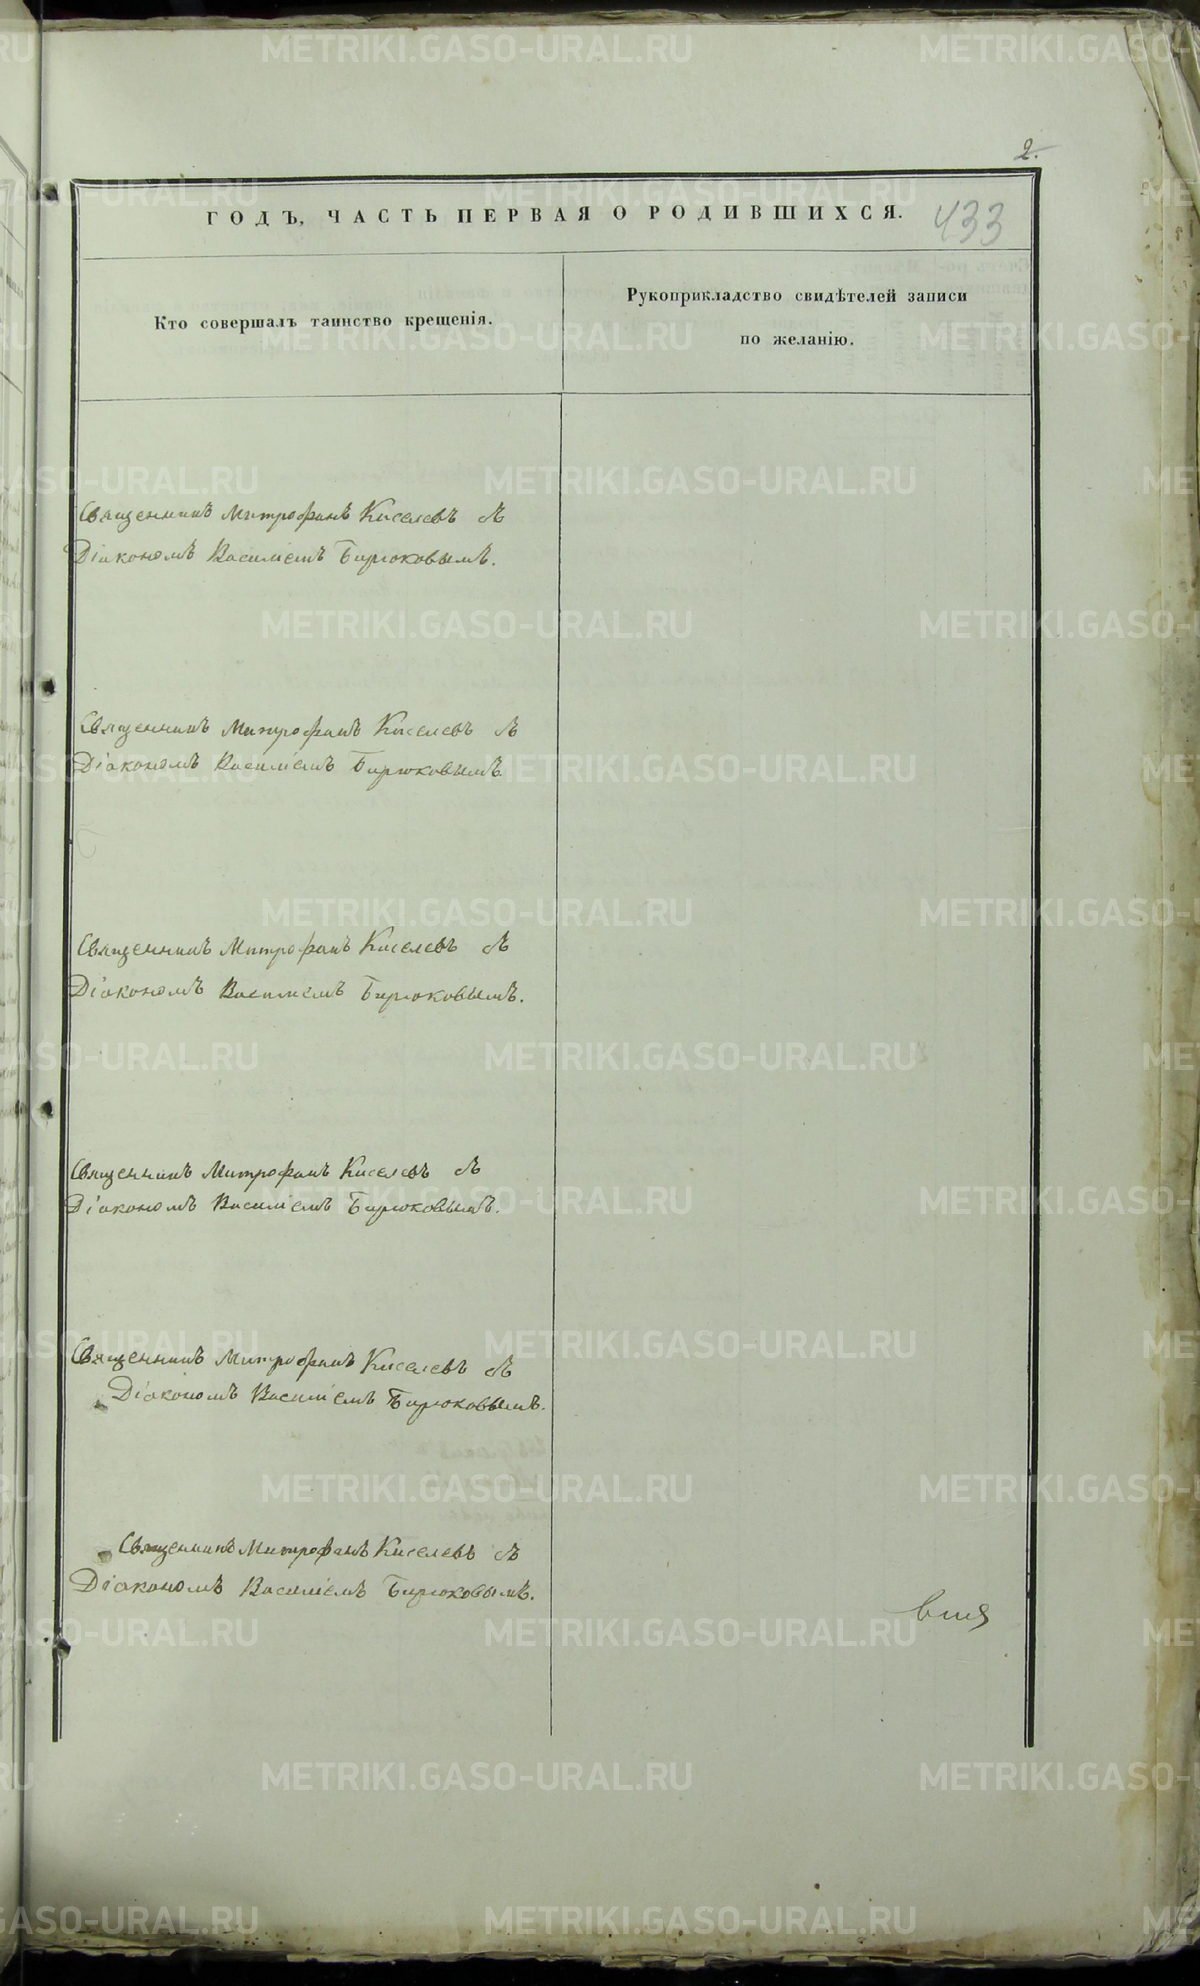 2.
ГОДЪ, ЧАСТЬ ПЕРВАЯ О РОДИВШИХСЯ.
433
Кто совершалъ таинство крещенія.
Рукоприкладство свидѣтелей записи
по желанію.
Священникъ Митрофанъ Киселевъ съ
Діакономъ Василіемъ Бирюковымъ.
Священникъ Митрофанъ Киселевъ съ
Діакономъ Василіемъ Бирюковымъ.
Священникъ Митрофанъ Киселевъ съ
Діакономъ Василіемъ Бирюковымъ.
Священникъ Митрофанъ Киселевъ съ
Діакономъ Василіемъ Бирюковымъ.
Священникъ Митрофанъ Киселевъ съ
Діакономъ Василіемъ Бирюковымъ.
Священникъ Митрофанъ Киселевъ съ
Діакономъ Василіемъ Бирюковымъ.
METRIKI.GASO-URAL.RU